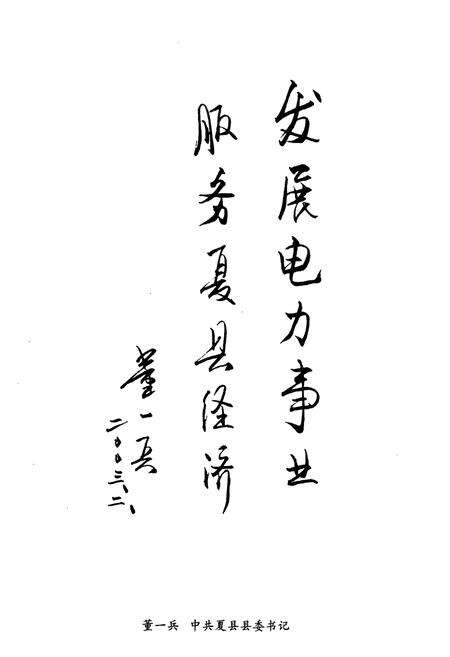 发展电力事业
服务夏县经济
董一兵
二〇〇三、二、
董一兵 中共夏县县委书记